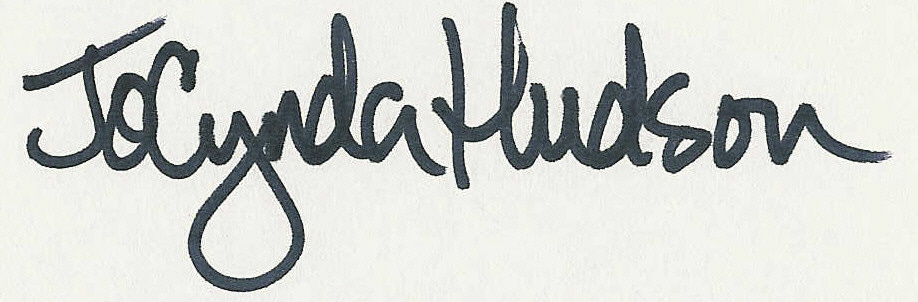 JoCynda Hudson